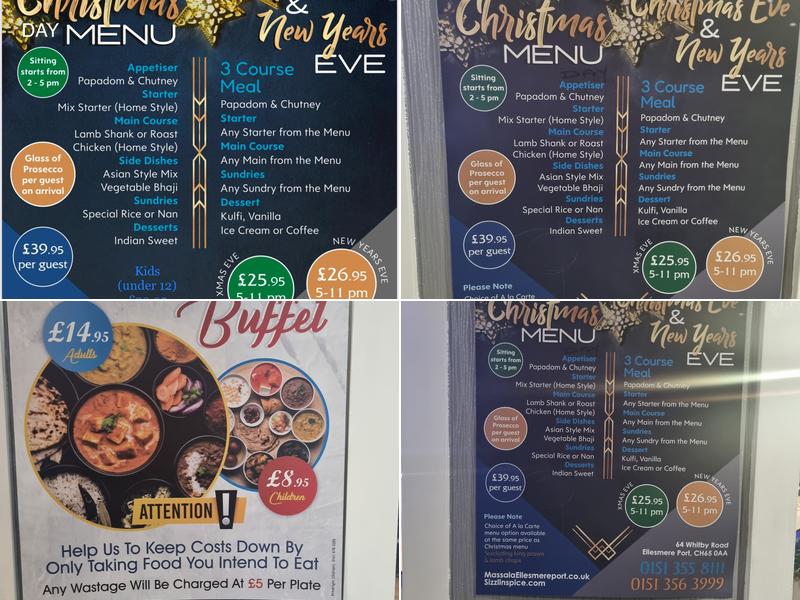 Christmas
DAY MENU
&
New Years
EVE
Sitting
starts from
2 - 5 pm
Appetiser
Papadom & Chutney
Starter
Mix Starter (Home Style)
Main Course
Lamb Shank or Roast
Chicken (Home Style)
Side Dishes
Asian Style Mix
Vegetable Bhaji
Sundries
Special Rice or Nan
Desserts
Indian Sweet
Glass of
Prosecco
per guest
on arrival
£39.95
per guest
Kids
(under 12)
3 Course
Meal
Papadom & Chutney
Starter
Any Starter from the Menu
Main Course
Any Main from the Menu
Sundries
Any Sundry from the Menu
Dessert
Kulfi, Vanilla
Ice Cream or Coffee
XMAS EVE
£25.95
5-11 pm
NEW YEARS EVE
£26.95
5-11 pm
Christmas
MENU
DAY
Christmas Eve
&
New Years
EVE
Sitting
starts from
2 - 5 pm
Appetiser
Papadom & Chutney
Starter
Mix Starter (Home Style)
Main Course
Lamb Shank or Roast
Chicken (Home Style)
Side Dishes
Asian Style Mix
Vegetable Bhaji
Sundries
Special Rice or Nan
Desserts
Indian Sweet
Glass of
Prosecco
per guest
on arrival
£39.95
per guest
Please Note
Choice of A la Carte
3 Course
Meal
Papadom & Chutney
Starter
Any Starter from the Menu
Main Course
Any Main from the Menu
Sundries
Any Sundry from the Menu
Dessert
Kulfi, Vanilla
Ice Cream or Coffee
XMAS EVE
£25.95
5-11 pm
NEW YEARS EVE
£26.95
5-11 pm
Buffet
£14.95
Adults
£8.95
Children
ATTENTION !
Help Us To Keep Costs Down By
Only Taking Food You Intend To Eat
Any Wastage Will Be Charged At £5 Per Plate
Christmas
MENU
Christmas Eve
&
New Years
EVE
Sitting
starts from
2 - 5 pm
Appetiser
Papadom & Chutney
Starter
Mix Starter (Home Style)
Main Course
Lamb Shank or Roast
Chicken (Home Style)
Side Dishes
Asian Style Mix
Vegetable Bhaji
Sundries
Special Rice or Nan
Desserts
Indian Sweet
Glass of
Prosecco
per guest
on arrival
£39.95
per guest
3 Course
Meal
Papadom & Chutney
Starter
Any Starter from the Menu
Main Course
Any Main from the Menu
Sundries
Any Sundry from the Menu
Dessert
Kulfi, Vanilla
Ice Cream or Coffee
XMAS EVE
£25.95
5-11 pm
NEW YEARS EVE
£26.95
5-11 pm
Please Note
Choice of A la Carte
menu option available
at the same price as
Christmas menu
*excluding king prawn
& lamb chops
MassalaEllesmereport.co.uk
SizzlInspice.com
64 Whilby Road
Ellesmere Port, CH65 0AA
0151 355 8111
0151 356 3999